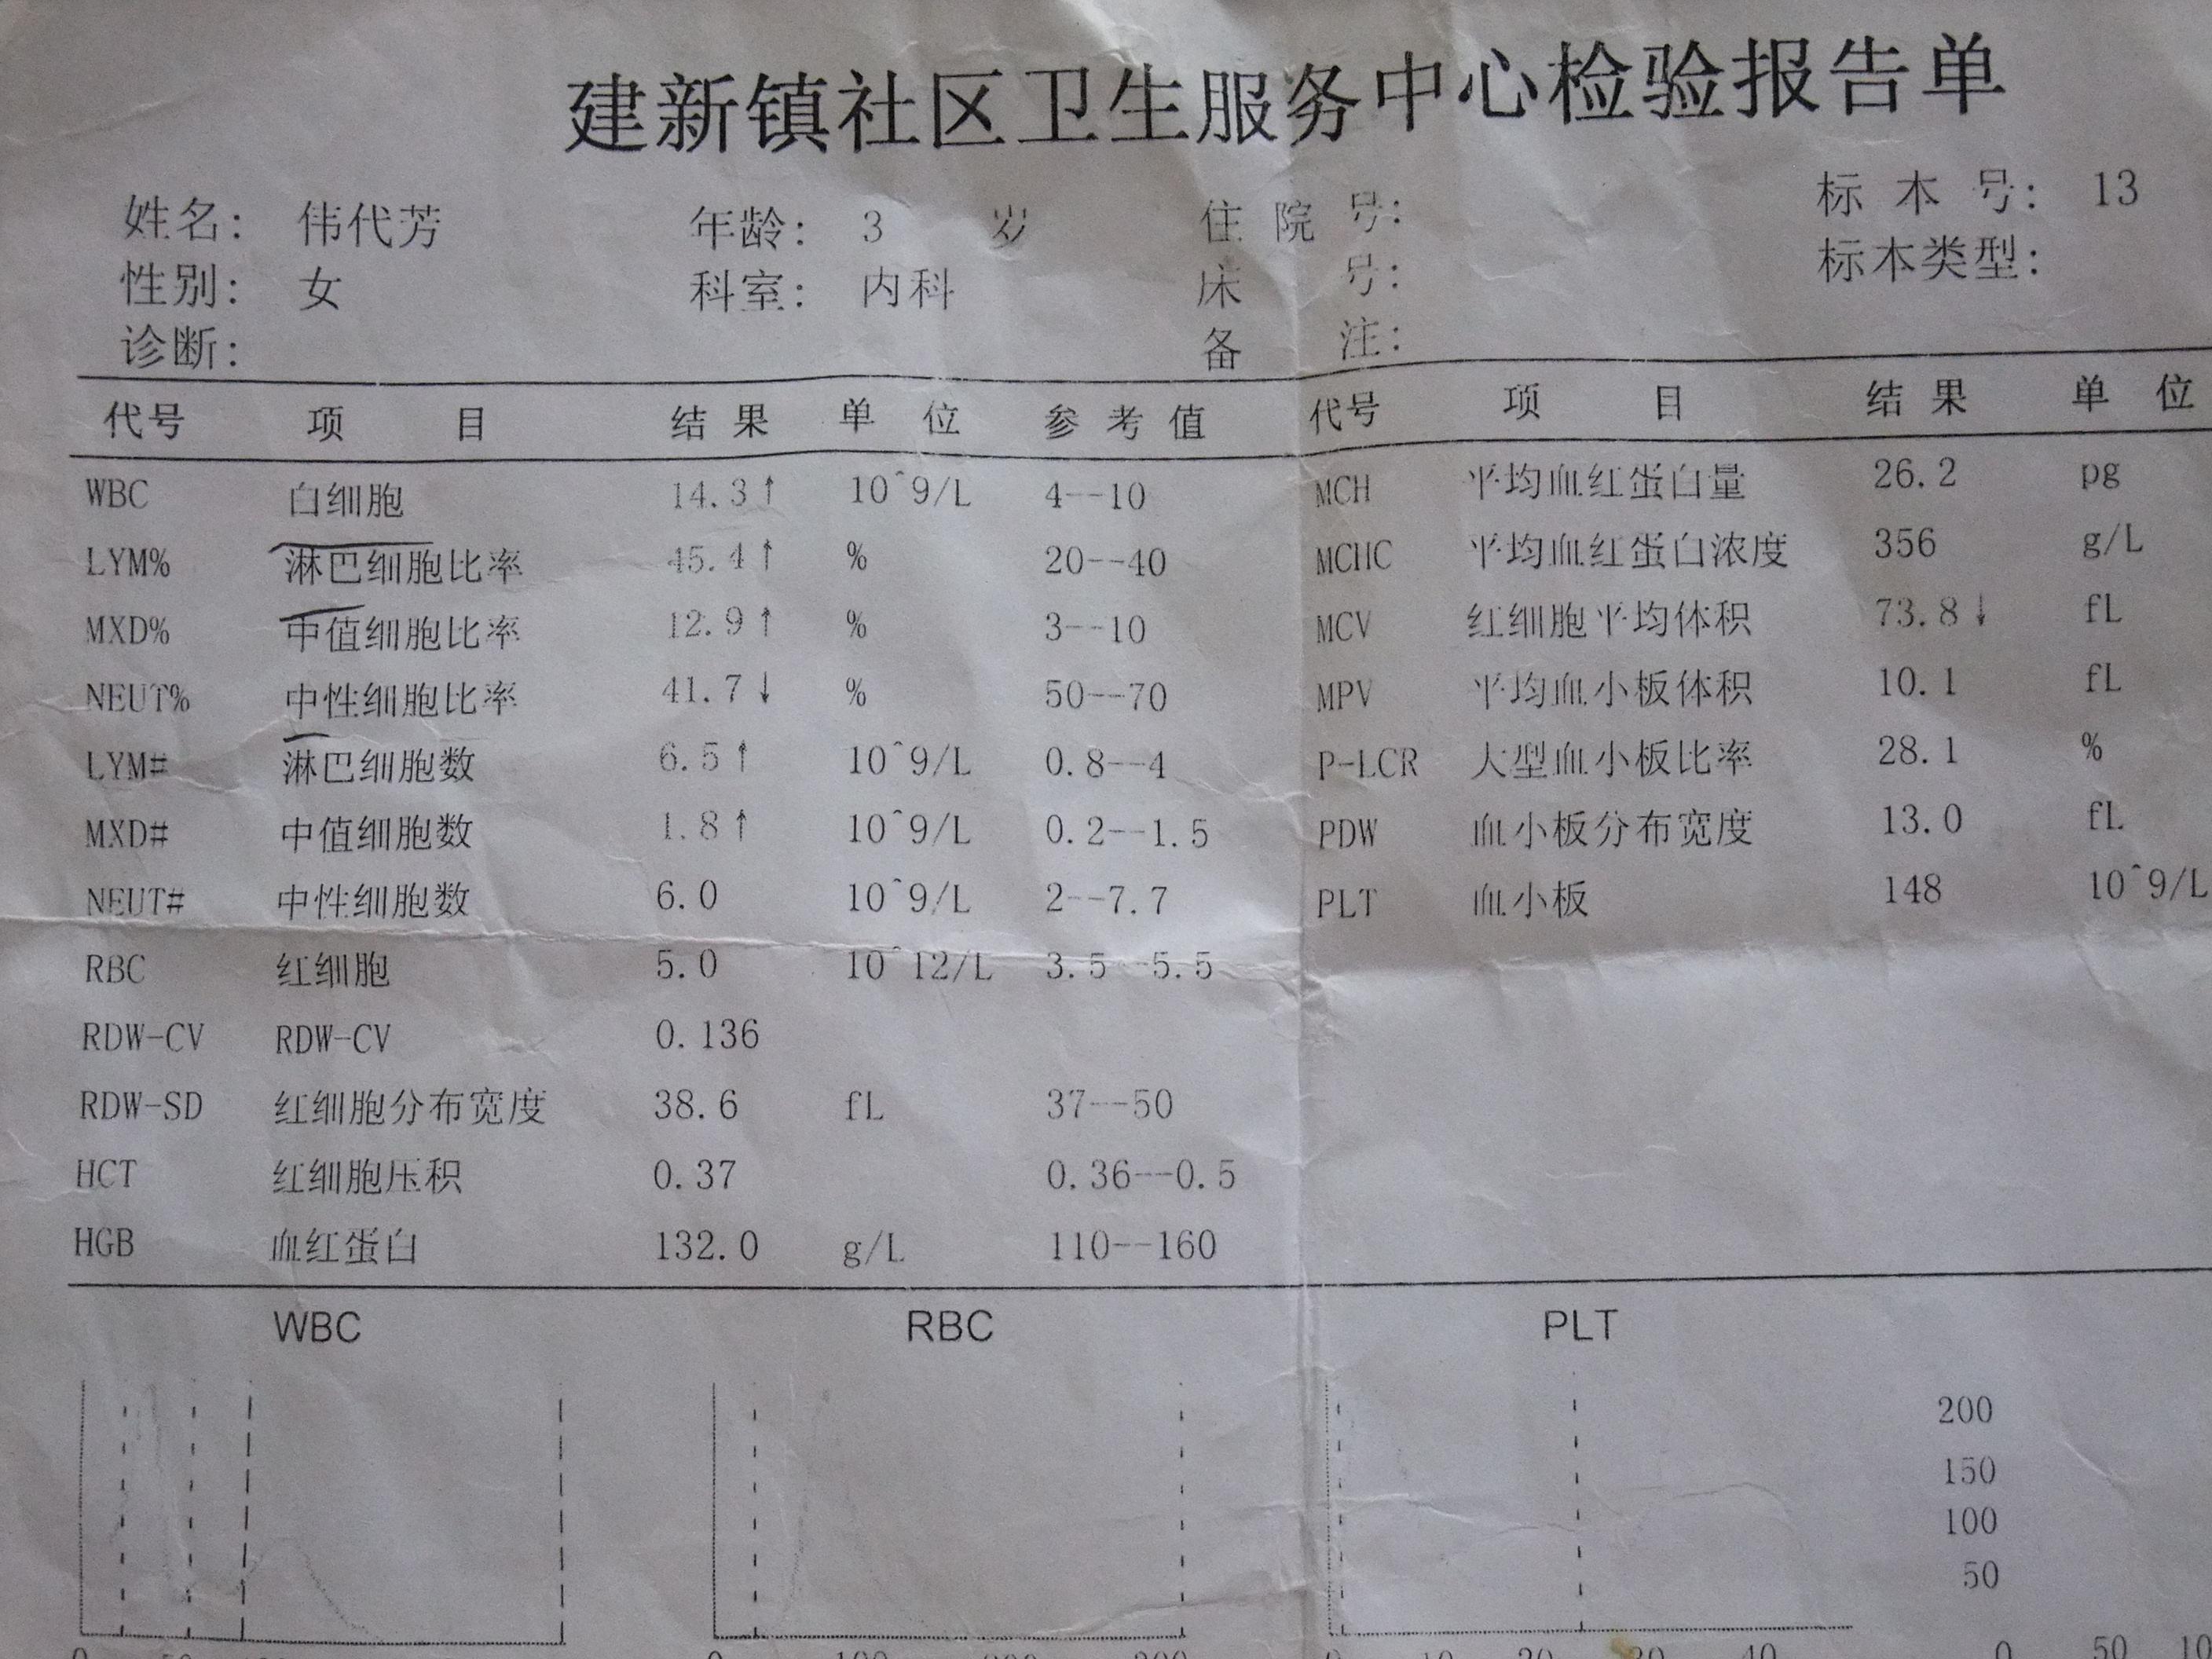 建新镇社区卫生服务中心检验报告单
姓名: 伟代芳 年龄: 3 岁 住院号: 标本号: 13
性别: 女 科室: 内科 床号: 标本类型:
诊断: 备注:
代号 项目 结果 单位 参考值 代号 项目 结果 单位
WBC 白细胞 14.3↑ 10^9/L 4--10 MCH 平均血红蛋白量 26.2 pg
LYM% 淋巴细胞比率 45.4↑ % 20--40 MCHC 平均血红蛋白浓度 356 g/L
MXD% 中值细胞比率 12.9↑ % 3--10 MCV 红细胞平均体积 73.8↓ fL
NEUT% 中性细胞比率 41.7↓ % 50--70 MPV 平均血小板体积 10.1 fL
LYM# 淋巴细胞数 6.5↑ 10^9/L 0.8--4 P-LCR 大型血小板比率 28.1 %
MXD# 中值细胞数 1.8↑ 10^9/L 0.2--1.5 PDW 血小板分布宽度 13.0 fL
NEUT# 中性细胞数 6.0 10^9/L 2--7.7 PLT 血小板 148 10^9/L
RBC 红细胞 5.0 10^12/L 3.5--5.5
RDW-CV RDW-CV 0.136
RDW-SD 红细胞分布宽度 38.6 fL 37--50
HCT 红细胞压积 0.37 0.36--0.5
HGB 血红蛋白 132.0 g/L 110--160
WBC RBC PLT
200
150
100
50